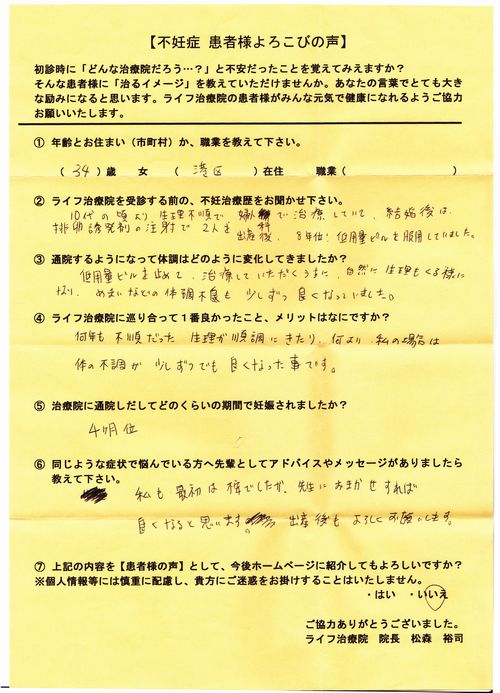 【不妊症 患者様よろこびの声】
初診時に「どんな治療院だろう…？」と不安だったことを覚えてみえますか？
そんな患者様に「治るイメージ」を教えていただけませんか。あなたの言葉でとても大き
な励みになると思います。ライフ治療院の患者様がみんな元気で健康になれるようご協力
お願いいたします。
① 年齢とお住まい（市町村）か、職業を教えて下さい。
（ 34 ）歳 女 （ 港区 ）在住 職業（ ）
② ライフ治療院を受診する前の、不妊治療歴をお聞かせ下さい。
10代の頃より生理不順で 婦人科で治療していて、結婚後は、
排卵誘発剤の注射で 2人を出産後、8年位、低用量ピルを服用していました。
③ 通院するようになって体調はどのように変化してきましたか？
低用量ピルを止めて、治療していただくうちに、自然に生理もくる様に
なり、めまいなどの体調不良も少しずつ良くなっていました。
④ ライフ治療院に巡り合って１番良かったこと、メリットはなにですか？
何年も不順だった生理が順調にきたり、何より、私の場合は
体の不調が少しずつでも良くなった事です。
⑤ 治療院に通院しだしてどのくらいの期間で妊娠されましたか？
4ヶ月位
⑥ 同じような症状で悩んでいる方へ先輩としてアドバイスやメッセージがありましたら
教えて下さい。
私も最初は でしたが、先生におまかせすれば
良くなると思います。出産後もよろしくお願いします。
⑦ 上記の内容を【患者様の声】として、今後ホームページに紹介してもよろしいですか？
※個人情報等には慎重に配慮し、貴方にご迷惑をお掛けすることはいたしません。
・はい ・いいえ
ご協力ありがとうございました。
ライフ治療院 院長 松森 裕司